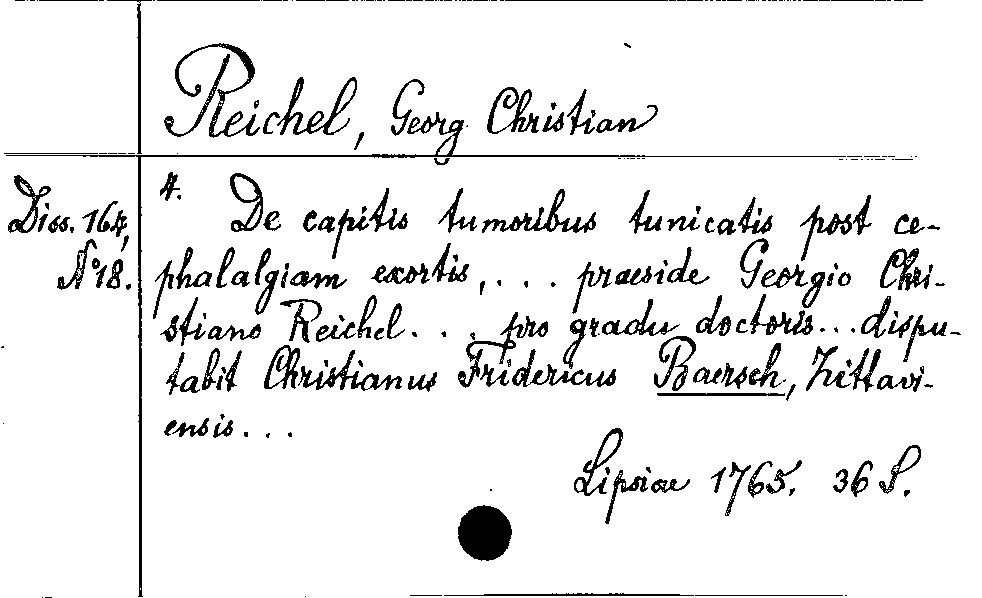 Reichel, Georg Christian
Diss. 164,
No 18.
4. De capitis tumoribus tunicatis post ce-
phalalgiam exortis, . . . praeside Georgio Chri-
stiano Reichel . . . pro gradu doctoris . . . dispu-
tabit Christianus Fridericus Baersch, Zittavi-
ensis . . .
Lipsiae 1765. 36 S.